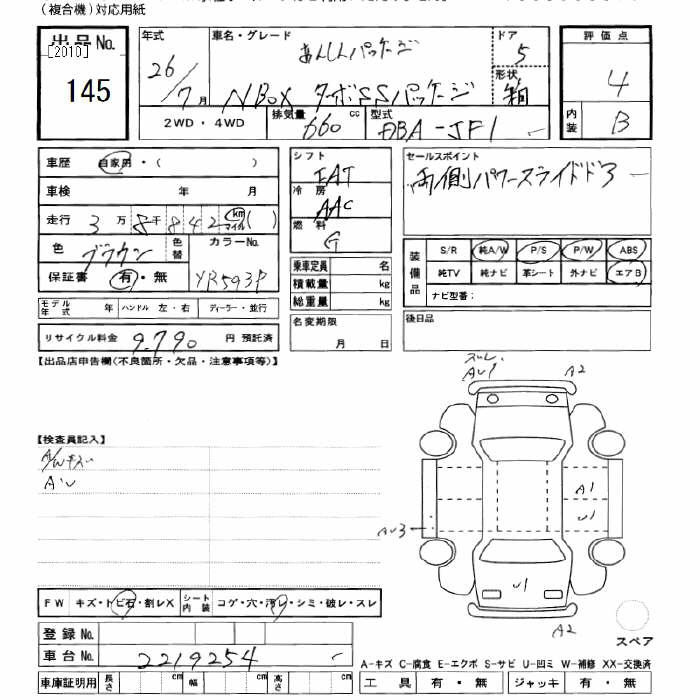 (複合機)対応用紙
出品No. [2010] 145
年式 26/7月
車名・グレード あんしんパッケージ
NBOX ターボSSパッケージ
ドア 5
形状 箱
評価点 4
内装 B
2WD・4WD 排気量 660 cc 型式 DBA-JF1
車歴 自家用・( )
車検 年 月
走行 3万8千842 km マイル ( )
色 ブラウン 色替 カラーNo. YR593P
保証書 有・無
モデル年式 年 ハンドル 左・右 ディーラー・並行
リサイクル料金 9,790 円 預託済
シフト FAT
冷房 AAC
燃料 G
乗車定員 名
積載量 kg
総重量 kg
名変期限 月 日
セールスポイント
両側パワースライドドア
装備品 S/R 純A/W P/S P/W ABS
純TV 純ナビ 革シート 外ナビ エアB
ナビ型番:
後日品
【出品店申告欄(不良箇所・欠品・注意事項等)】
【検査員記入】
A/Wキズ
AU
スレ
AU1 A2
A1
U1
AU3
U1
A2
スペア
FW キズ・トビ石・割レX シート内装 コゲ・穴・汚レ・シミ・破レ・スレ
登録No.
車台No. 2219254
車庫証明用 長さ cm 幅 cm 高さ cm
A-キズ C-腐食 E-エクボ S-サビ U-凹ミ W-補修 XX-交換済
工具 有・無 ジャッキ 有・無